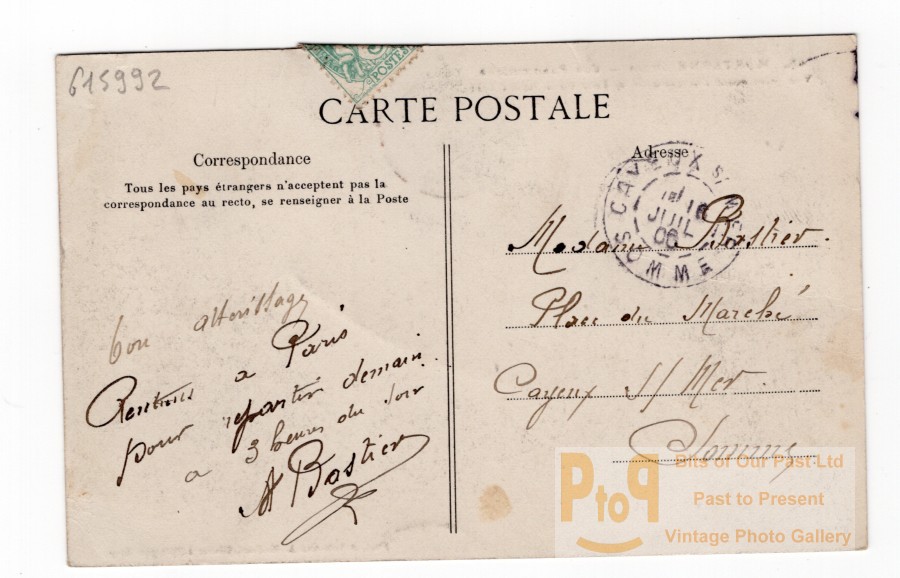 615992
POSTES
CARTE POSTALE
Correspondance
Tous les pays étrangers n'acceptent pas la
correspondance au recto, se renseigner à la Poste
bon atterrissage
Rentrons a Paris
pour repartir demain.
a 3 heures du soir
A Bastier
Adresse
CAYEUX S/ MER
16
JUIL
06
SOMME
Madame Bastier.
Place du Marché
Cayeux S/ Mer.
Somme
PtoP
Bits of Our Past Ltd
Past to Present
Vintage Photo Gallery